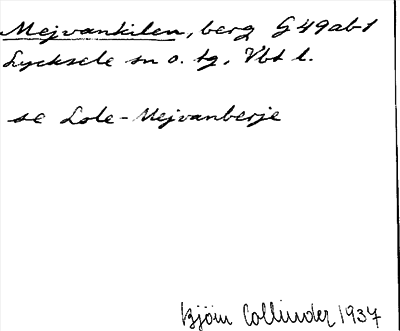 Mejvankilen, berg G49ab1
Lycksele sn o. tg. Vbt l.
se Lole-Mejvanberje
Björn Collinder 1937